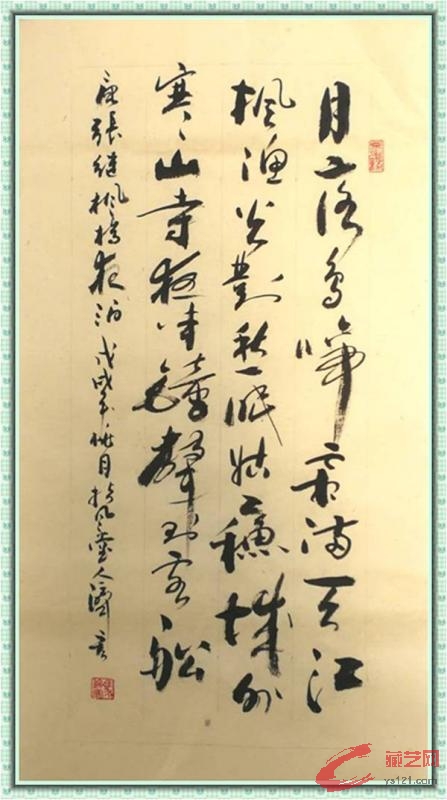 月落烏啼霜满天江
枫渔火對愁眠姑蘓城外
寒山寺夜半鐘聲到客船
唐張继枫橋夜泊戊戌年月人濤书
藏艺网
ys121.com